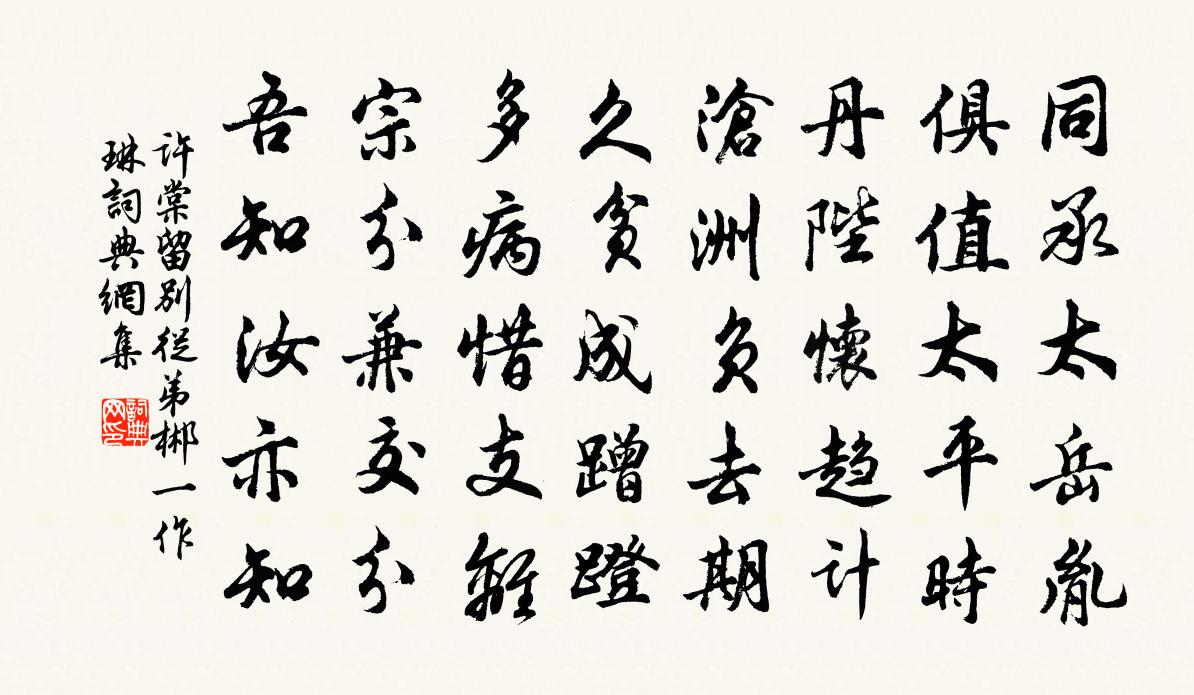 同承太岳胤
俱值太平時
丹陛懷趨計
滄洲負去期
久貧成蹭蹬
多病惜支離
宗分兼交分
吾知汝亦知
許棠留別從弟郴一作
琳詞典網集
詞典
网印